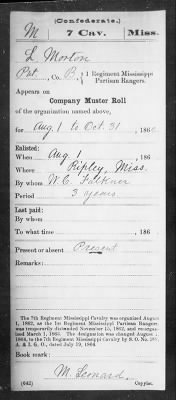 (Confederate.)
M 7 Cav. Miss.
L. Morton
Pvt., Co. B, 1 Regiment Mississippi
Partisan Rangers.
Appears on
Company Muster Roll
of the organization named above,
for Aug 1 to Oct. 31, 186
Enlisted:
When Aug 1, 186
Where Ripley, Miss.
By whom W. C. Falkner
Period 3 years
Last paid:
By whom
To what time , 186
Present or absent Present
Remarks:
The 7th Regiment Mississippi Cavalry was organized August
1, 1862, as the 1st Regiment Mississippi Partisan Rangers,
was temporarily disbanded November 15, 1862, and reorgan-
ized March 1, 1863. The designation was changed August 1,
1864, to the 7th Regiment Mississippi Cavalry by S. O. No.
A. & I. G. O., dated July 19, 1864.
Book mark:
(642) M. Leonard
Copyist.